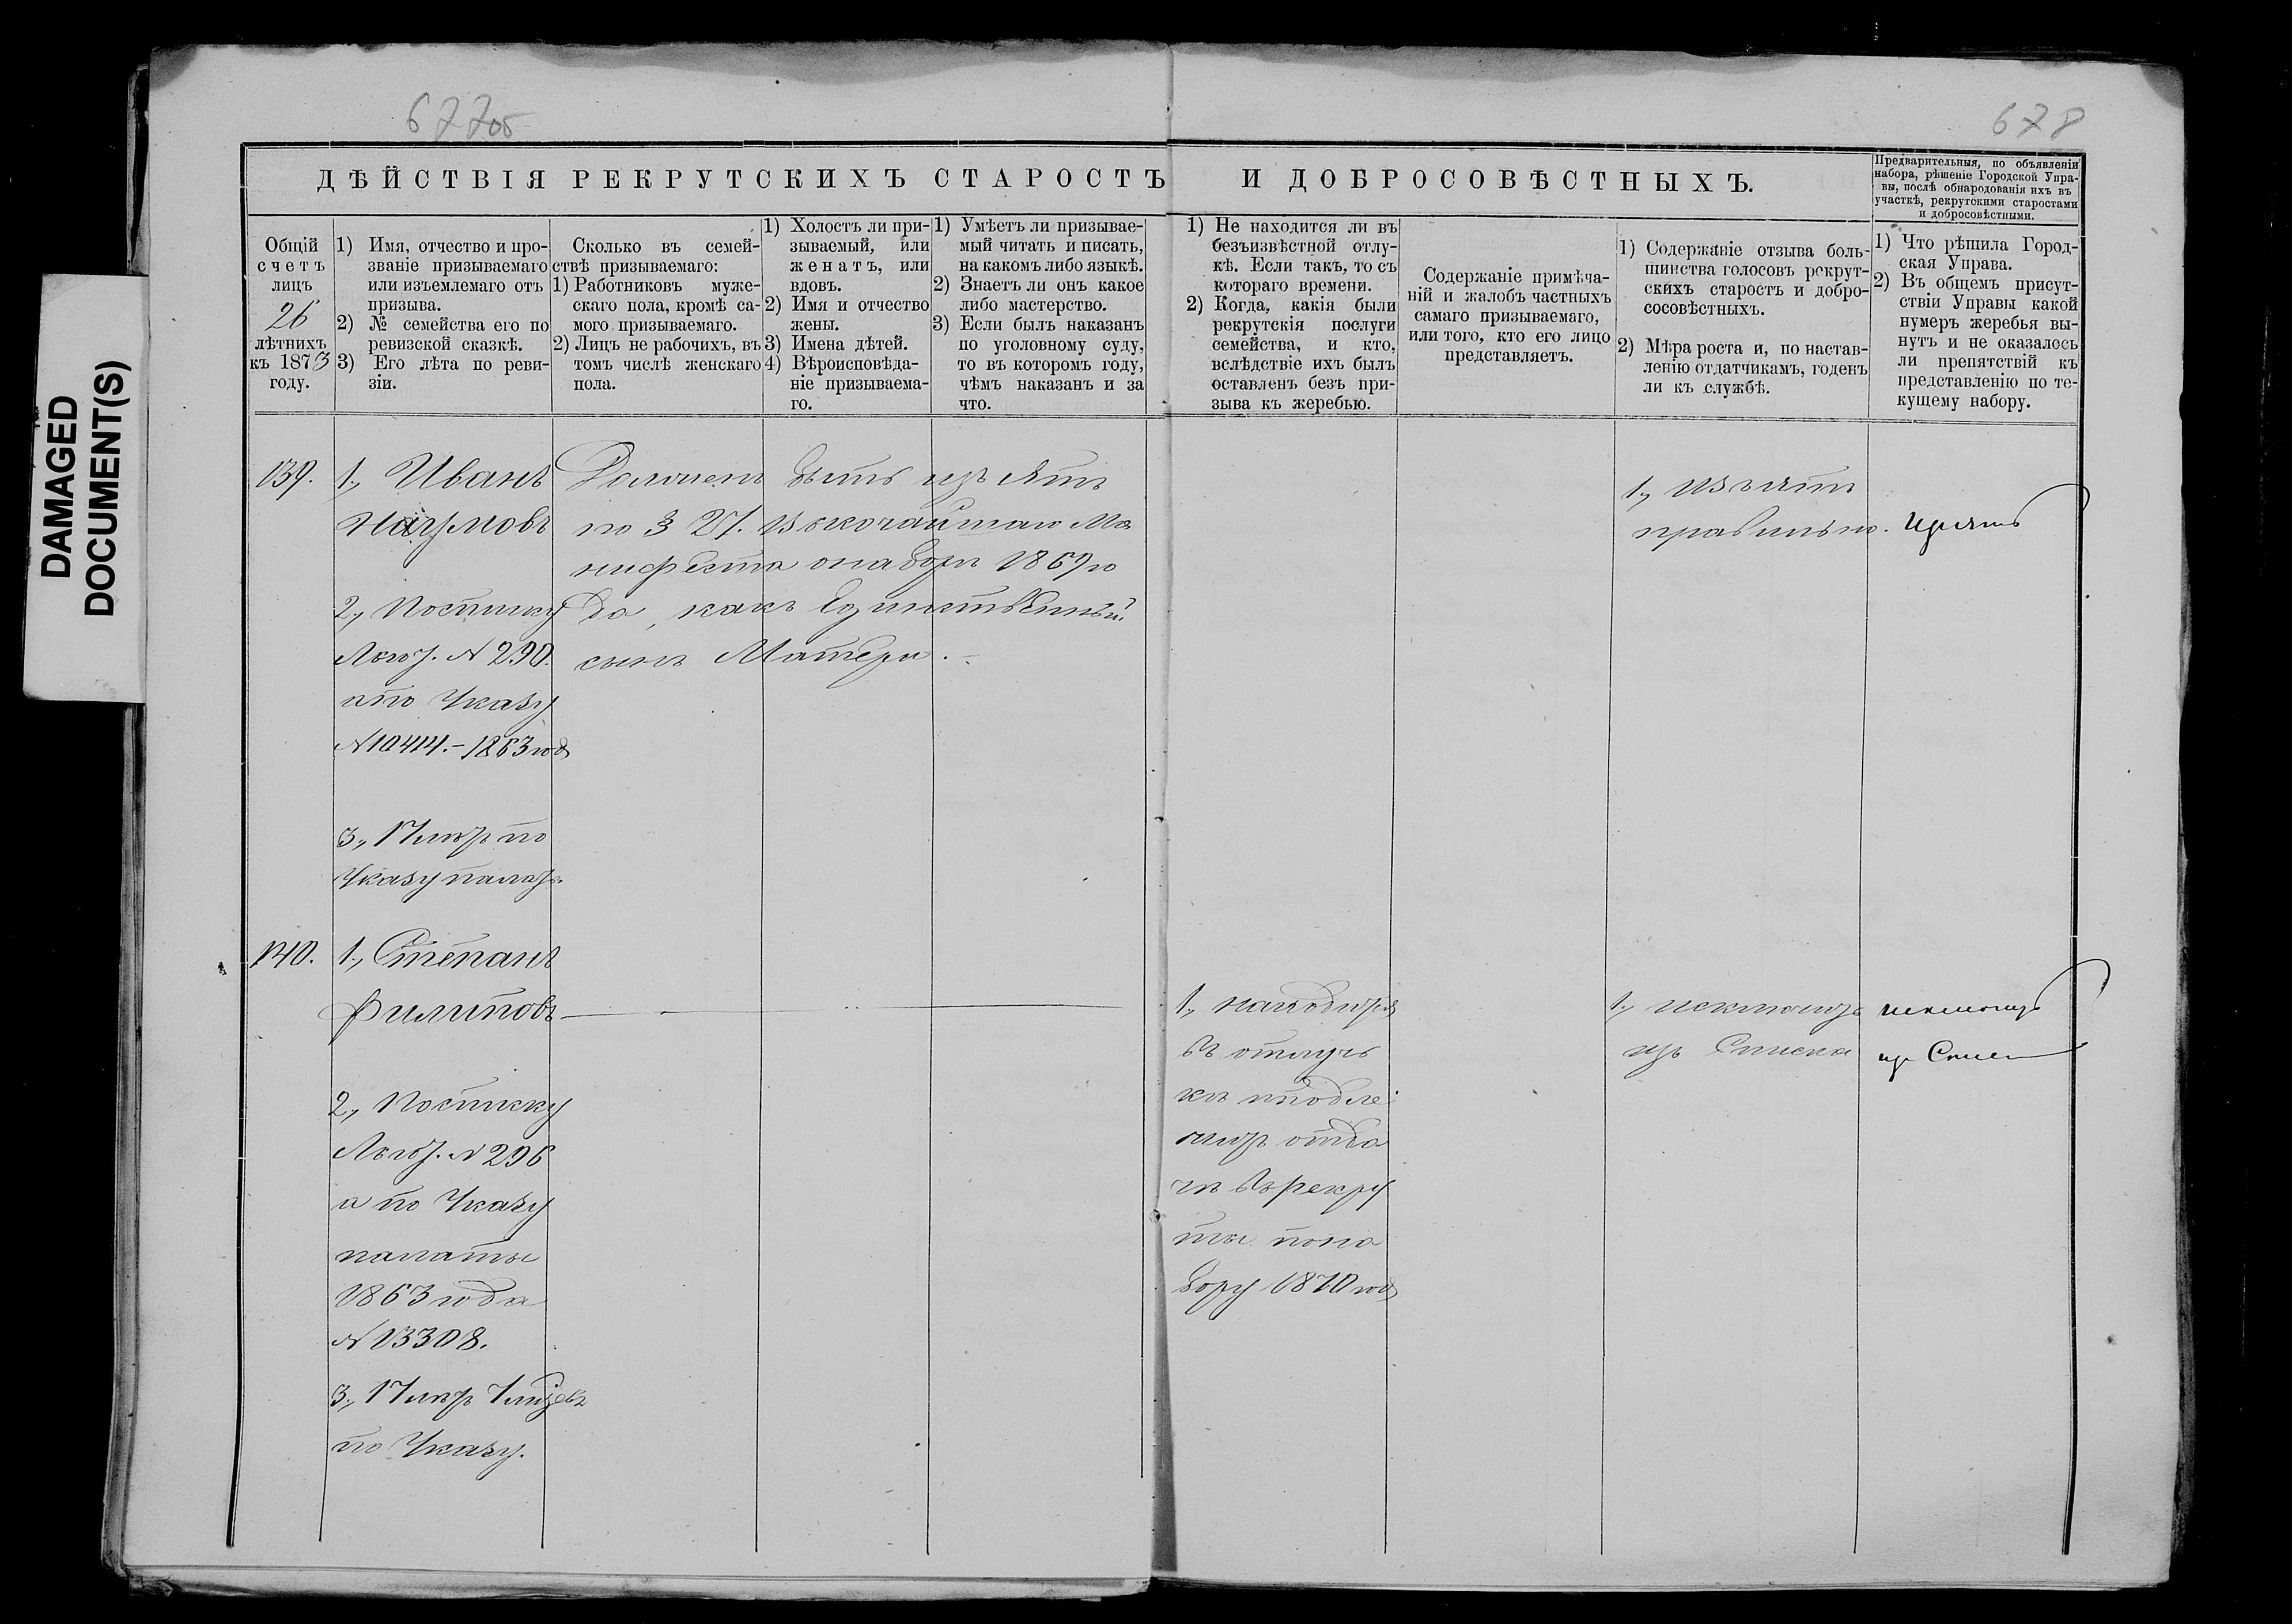 DAMAGED
DOCUMENT(S)
677об
678
ДѢЙСТВІЯ РЕКРУТСКИХЪ СТАРОСТЪ И ДОБРОСОВѢСТНЫХЪ.
Предварительныя, по объявленіи
набора, рѣшеніе Городской Упра-
вы, послѣ обнародованія ихъ въ
участкѣ, рекрутскими старостами
и добросовѣстными.
Общій
счетъ
лицъ
26
лѣтнихъ
къ 1873
году.
1) Имя, отчество и про-
званіе призываемаго
или изъемлемаго отъ
призыва.
2) № семейства его по
ревизской сказкѣ.
3) Его лѣта по реви-
зіи.
Сколько въ семей-
ствѣ призываемаго:
1) Работниковъ муже-
скаго пола, кромѣ са-
мого призываемаго.
2) Лицъ не рабочихъ, въ
томъ числѣ женскаго
пола.
1) Холостъ ли при-
зываемый, или
женатъ, или
вдовъ.
2) Имя и отчество
жены.
3) Имена дѣтей.
4) Вѣроисповѣда-
ніе призываема-
го.
1) Умѣетъ ли призывае-
мый читать и писать,
на какомъ либо языкѣ.
2) Знаетъ ли онъ какое
либо мастерство.
3) Если былъ наказанъ
по уголовному суду,
то въ которомъ году,
чѣмъ наказанъ и за
что.
1) Не находится ли въ
безъизвѣстной отлу-
кѣ. Если такъ, то съ
котораго времени.
2) Когда, какія были
рекрутскія послуги
семейства, и кто,
вслѣдствіе ихъ былъ
оставленъ безъ при-
зыва къ жеребью.
Содержаніе примѣча-
ній и жалобъ частныхъ
самаго призываемаго,
или того, кто его лицо
представляетъ.
1) Содержаніе отзыва боль-
шинства голосовъ рекрут-
скихъ старостъ и добро-
сосовѣстныхъ.
2) Мѣра роста и, по настав-
ленію отдатчикамъ, годенъ
ли къ службѣ.
1) Что рѣшила Город-
ская Управа.
2) Въ общемъ присут-
ствіи Управы какой
нумеръ жеребья вы-
нутъ и не оказалось
ли препятствій къ
представленію по те-
кущему набору.
139.
1., Иванъ
Наумовъ
2., Посписку
№ 290.
апо Указу
№ 10414.-1863 год
3., 17 лѣтъ по
Указу палат.
Долженъ быть изъятъ
по § 27. Высочайшаго Ма
нифеста о наборѣ 1869 го
да, какъ Единственный
сынъ Матери.
1., Изъятъ
правильно.
140.
1., Степанъ
Филиповъ
2., Посписку
№ 296
а по Указу
палаты
1863 года
№ 13308.
3., 17 лѣтъ
по Указу.
1., находится
въ отлучкѣ
отда
чѣ въ рекру
ты пона
бору 1870 год
1., исключить
изъ Списка
исключить
изъ Списка